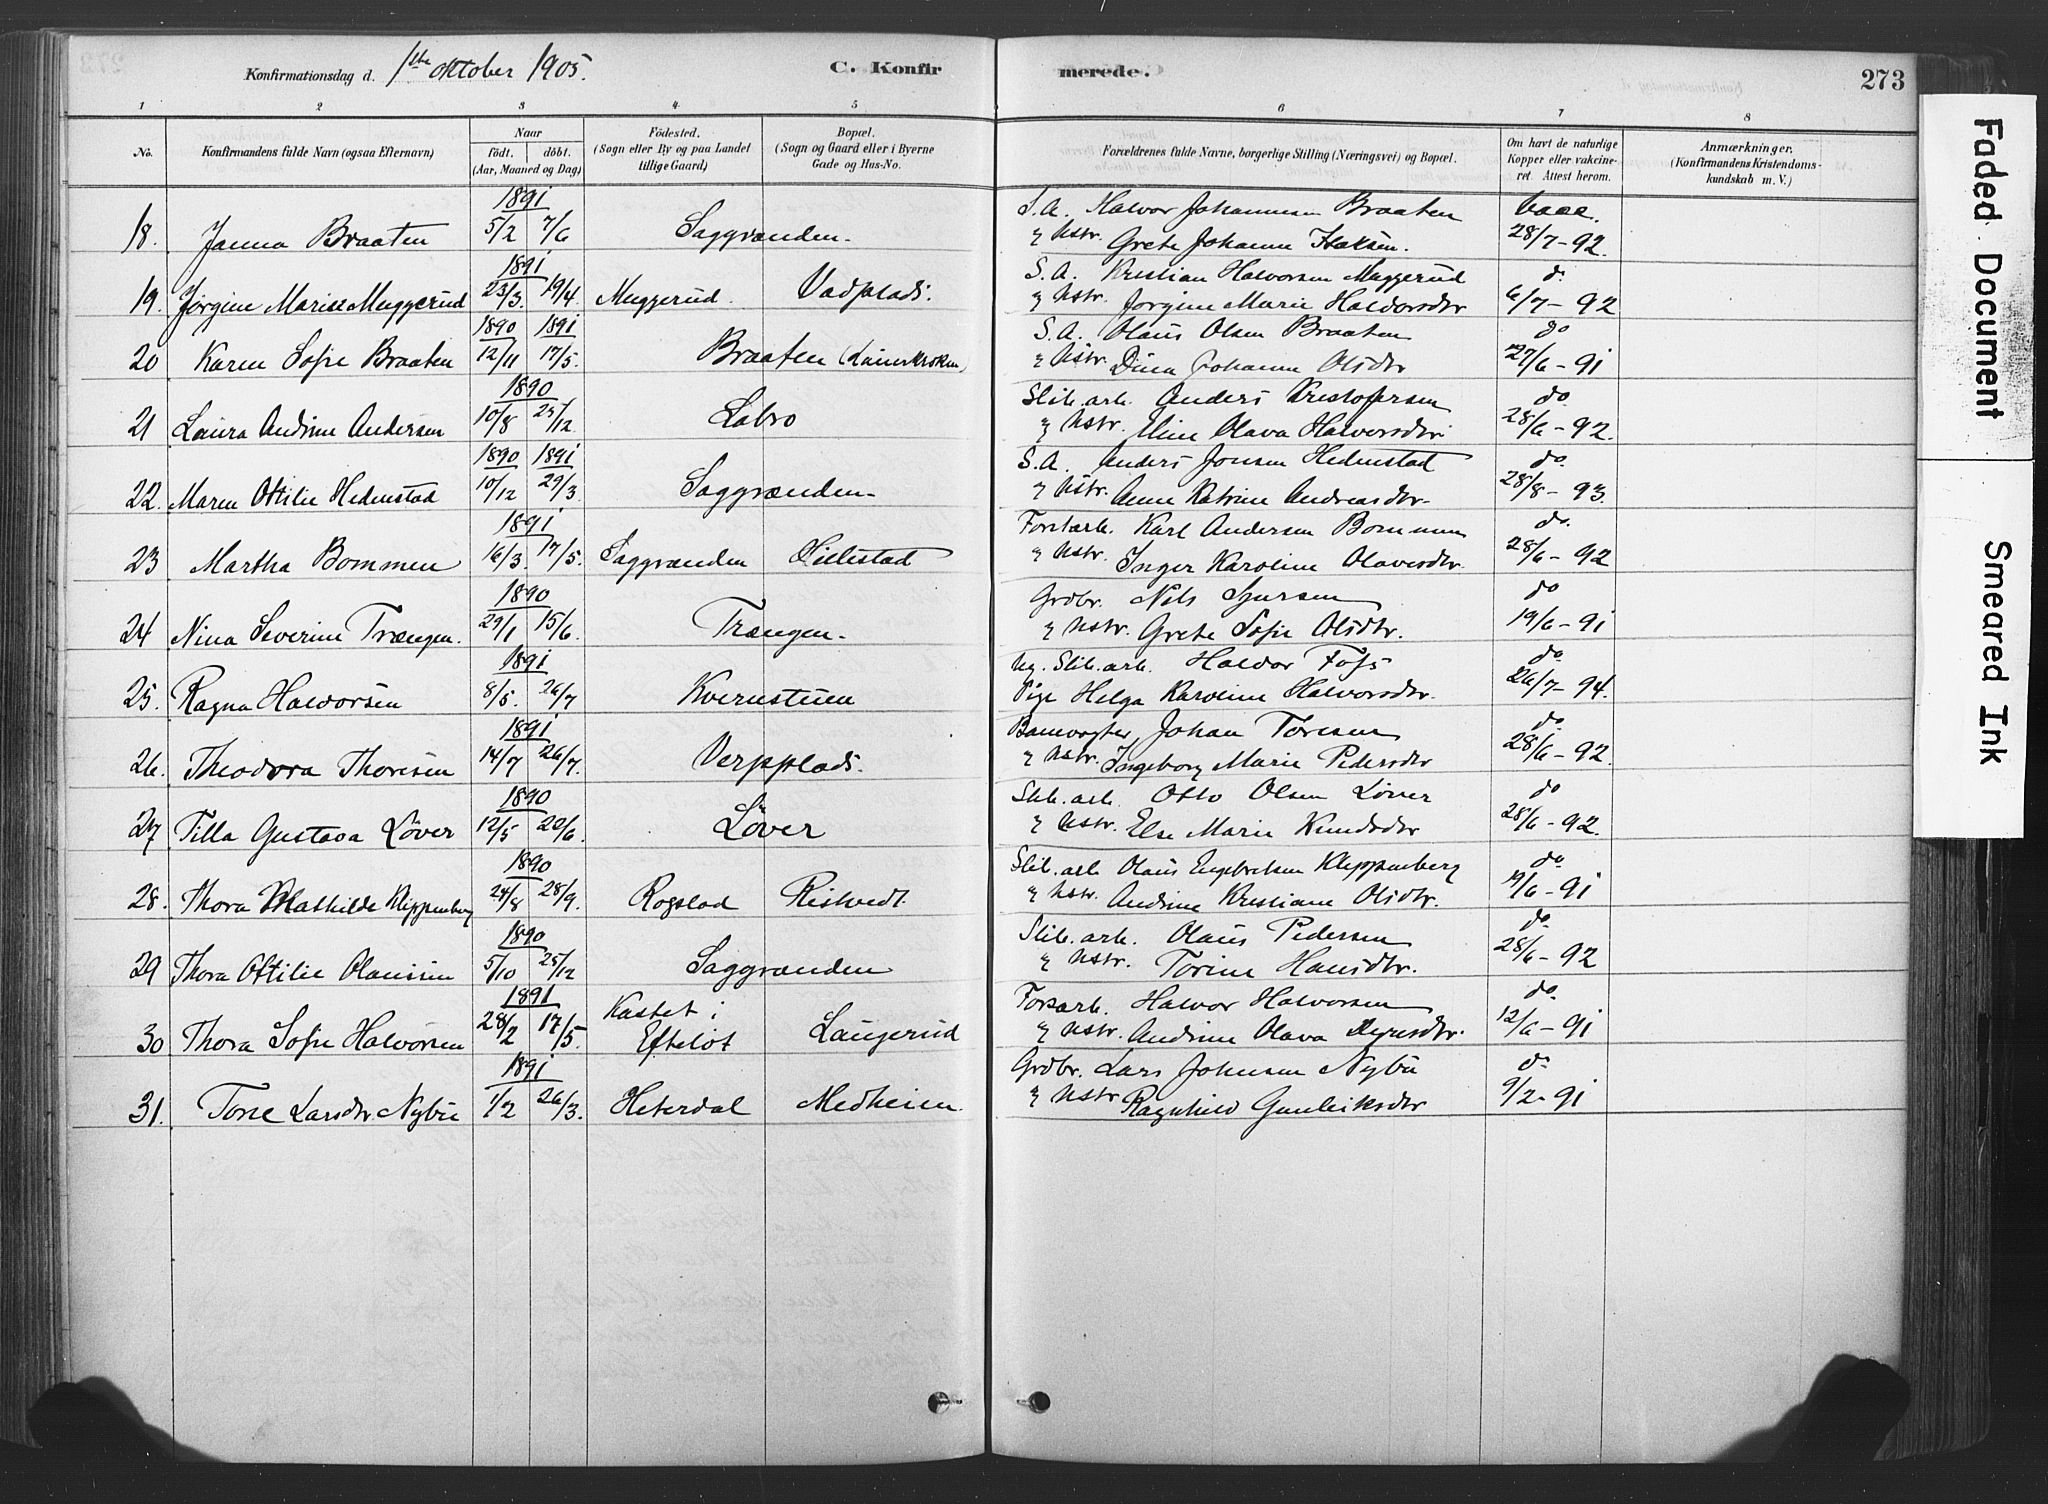 Konfirmationsdag d. 1ste Oktober 1905.
C. Konfirmerede.
273
1 2 3 4 5 6 7 8
No.
Konfirmandens fulde Navn (ogsaa Efternavn)
Naar
født. døbt.
(Aar, Maaned og Dag)
Fødested.
(Sogn eller By og paa Landet tillige Gaard)
Bopæl.
(Sogn og Gaard eller i Byerne Gade og Hus-No.
Forældrenes fulde Navne, borgerlige Stilling (Næringsvei) og Bopæl.
Om havt de naturlige Kopper eller vakcineret. Attest herom.
Anmærkninger.
(Konfirmandens Kristendomskundskab m. V.)
18. Janna Braaten 1891 5/2 7/6 Saggrænden. S.A. Halvor Johannesen Braaten vacc.
& Hstr. Grete Johanne Isaksen. 28/7-92.
19. Jørgine Marise Muggerud 1891 23/3. 19/4. Muggerud. Vadplads. S.A. Kristian Halvorsen Muggerud do
& Hstr. Jørgine Marie Halvorsdtr 6/7-92
20 Karen Sofie Braaten 1890 12/11 1891 17/5. Braaten S.A. Olaus Olsen Braaten do
& Hstr. Dina Johanne Olsdtr 27/6-91
21 Laura Andrine Andersen 1890 10/8 /12. Labro Slib.arb. Anders Kristofersen do
& Hstr. Eline Olava Halvorsdtr 28/6-92.
22. Maren Ottilie Hedenstad 1890 10/12 1891 29/3. Saggrænden. S.A. Anders Jonsen Hedenstad do.
& Hstr. Anne Katrine Andreasdtr. 28/8-93.
23 Martha Bommen 1891 16/3. 17/5. Saggrænden Hillestad Forstarb. Karl Andersen Bommen do.
& Hstr. Inger Karoline Olavesdtr. 28/6-92
24 Nina Severine Trængen. 1890 29/1 15/6. Trængen. Grdbr. Nils Sjursen do
& Hstr. Grete Sofie Olsdtr. 19/6-91
25. Ragna Halvorsen 1891 8/5. 26/7 Kvernstuen Ug. Slib.arb. Halvor Foss do.
Pige Helga Karoline Halvorsdtr. 26/7-94.
26. Theodora Thoresen 1891 14/7 26/7. Verpplads. Banevogter Johan Toresen do.
& Hstr. Ingeborg Marie Pedersdtr 28/6-92.
27. Tilla Gustava Løver 1890 12/5 20/6. Løver Slib.arb. Otto Olsen Løver do
& Hstr. Else Marie Knudsdtr 28/6-92.
28. Thora Mathilde Klippenberg 1890 24/8 28/9. Rogstad Ristvedt. Slib.arb Olaus Engebretsen Klippenberg do.
& Hstr. Andrine Kristiane Olsdtr. 19/6-91
29 Thora Ottilie Olaussen 1890 5/10 25/12 Saggrænden Slib.arb. Olaus Pedersen do.
& Hstr. Torine Hansdtr. 28/6-92
30 Thora Sofie Halvorsen 1891 28/2 17/5. Kastet i Efteløt Laugerud Forsarb. Halvor Halvorsen do.
& Hstr. Andrine Olava Dyresdtr. 12/6-91
31. Tone Larsdtr. Nybu 1891 1/2 26/3. Heterdal Medheien. Grdbr. Lars Johnsen Nybu do.
& Hstr Ragnhild Gunleiksdtr 9/2-91
Faded Document
Smeared Ink